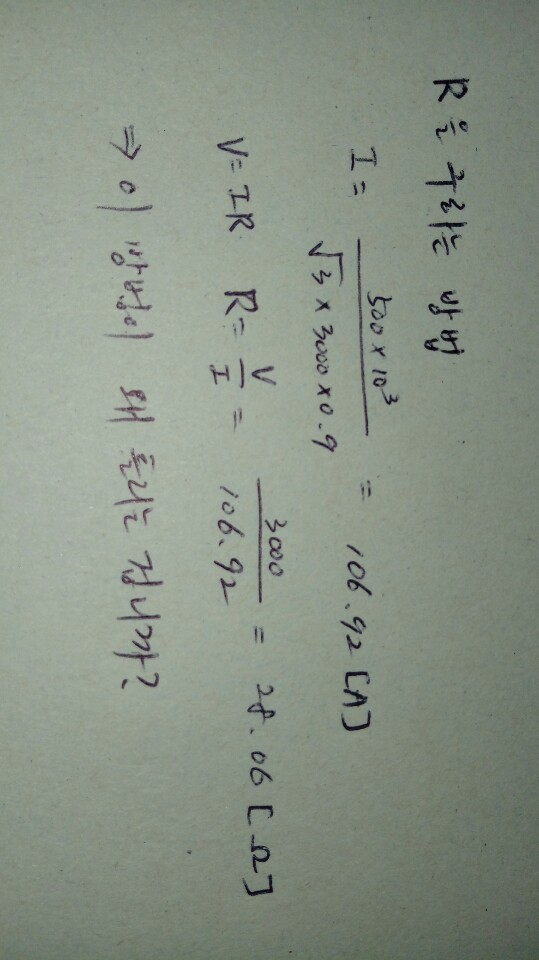 R을 구하는 방법
I = 500×10³ / √3 × 3000×0.9 = 106.92 [A]
V=IR R= V/I = 3000 / 106.92 = 28.06 [Ω]
⇒ 이 방법이 왜 틀리는 겁니까?